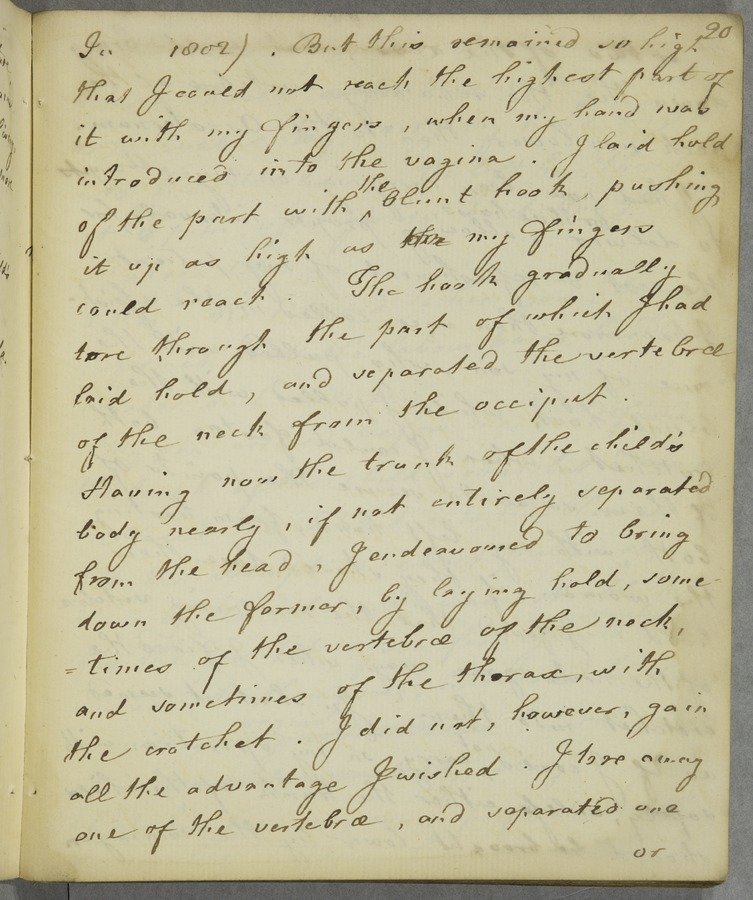 20
In 1802) . But this remained so high
that I could not reach the highest part of
it with my fingers, when my hand was
introduced into the vagina. I laid hold
of the part with the blunt hook, pushing
it up as high as my fingers
could reach. The hook gradually
tore through the part of which I had
laid hold, and separated the vertebræ
of the neck from the occiput.
Having now the trunk of the child's
body nearly, if not entirely separated
from the head, I endeavoured to bring
down the former, by laying hold, some-
=times of the vertebræ of the neck,
and sometimes of the thorax, with
the crotchet. I did not, however, gain
all the advantage I wished. I tore away
one of the vertebræ, and separated one
or